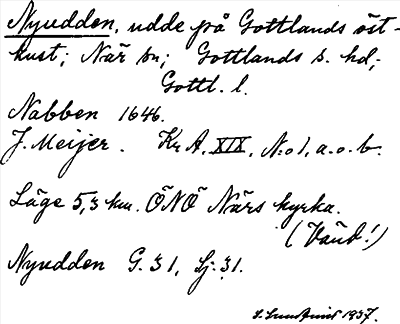 Nyudden, udde på Gottlands öst-
kust; När sn; Gottlands s. hd;
Gottl. l.
Nabben 1646.
J. Meijer. Kr A, XIX, N:o 1, a.o.b.
Läge 5,3 km. ÖNÖ Närs kyrka.
(Vänd!)
Nyudden G. 31, Sj. 31.
1937.